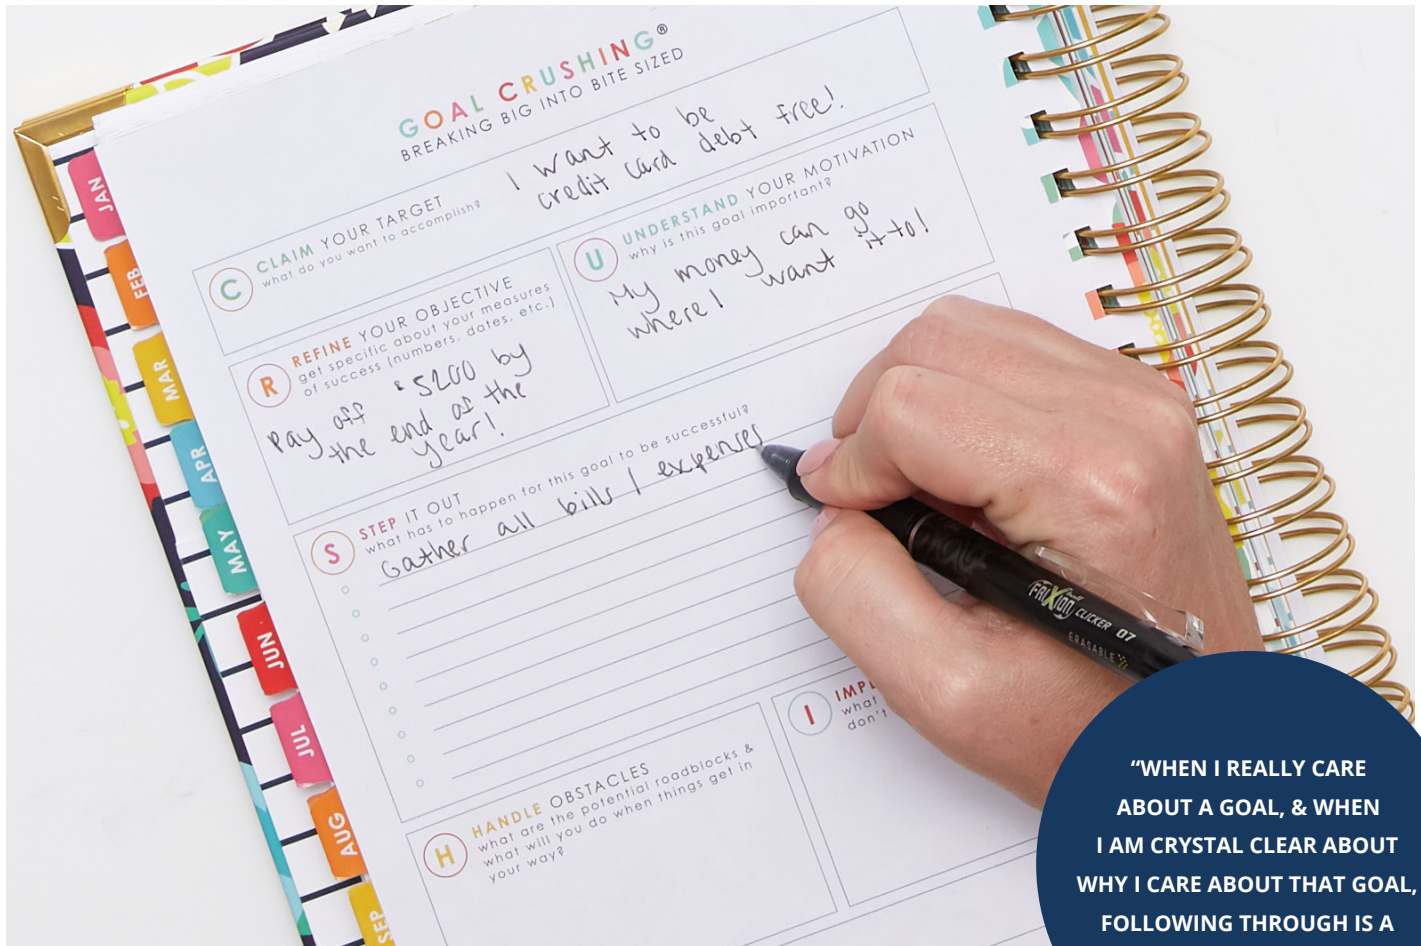 GOAL CRUSHING®
BREAKING BIG INTO BITE SIZED
C
CLAIM YOUR TARGET
what do you want to accomplish?
I want to be
credit card debt free!
R
REFINE YOUR OBJECTIVE
get specific about your measures
of success (numbers, dates, etc.)
Pay off $5200 by
the end of the
year!
U
UNDERSTAND YOUR MOTIVATION
why is this goal important?
My money can go
where I want it to!
S
STEP IT OUT
what has to happen for this goal to be successful?
Gather all bills / expenses
H
HANDLE OBSTACLES
what are the potential roadblocks &
what will you do when things get in
your way?
I
what
don't
JAN
FEB
MAR
APR
MAY
JUN
JUL
AUG
SEP
FRIXION ball CLICKER 07
ERASABLE
“WHEN I REALLY CARE
ABOUT A GOAL, & WHEN
I AM CRYSTAL CLEAR ABOUT
WHY I CARE ABOUT THAT GOAL,
FOLLOWING THROUGH IS A